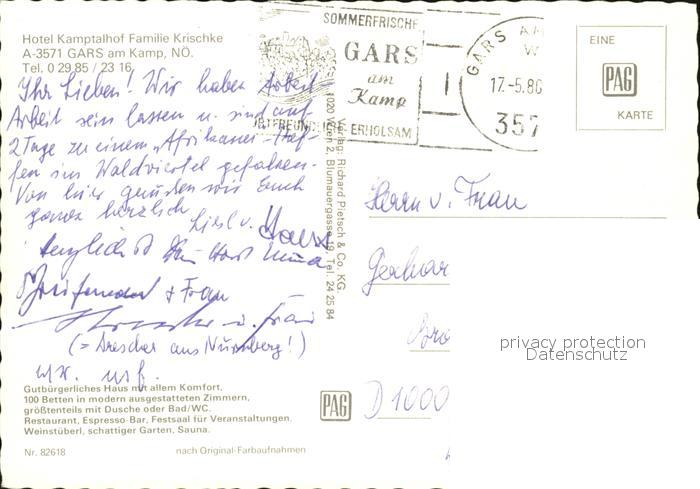 Hotel Kamptalhof Familie Krischke
A-3571 GARS am Kamp, NÖ.
Tel. 0 29 85 / 23 16
Ihr Lieben! Wir haben Arbeit
Arbeit sein lassen u. sind auf
2 Tage zu einem „Afrikaner"-Tref-
fen ins Waldviertel gefahren.
Von hier grüßen wir Euch
ganz herzlich
Liesl u. Hans
+ Frau
u. Frau
(= aus Nürnberg!)
usw. usf.
Gutbürgerliches Haus mit allem Komfort.
100 Betten in modern ausgestatteten Zimmern,
größtenteils mit Dusche oder Bad/WC.
Restaurant, Espresso-Bar, Festsaal für Veranstaltungen.
Weinstüberl, schattiger Garten, Sauna.
Nr. 82618
nach Original-Farbaufnahmen
PAG
Verlag: Richard Pietsch & Co. KG.
1020 Wien 2, Blumauergasse 19, Tel. 24 25 84
SOMMERFRISCHE
GARS
am
Kamp
ORTFREUNDLICH ERHOLSAM
GARS AM
17.-5.80
357
EINE
PAG
KARTE
Herrn u. Frau
Gerhar
D 1000
privacy protection
Datenschutz